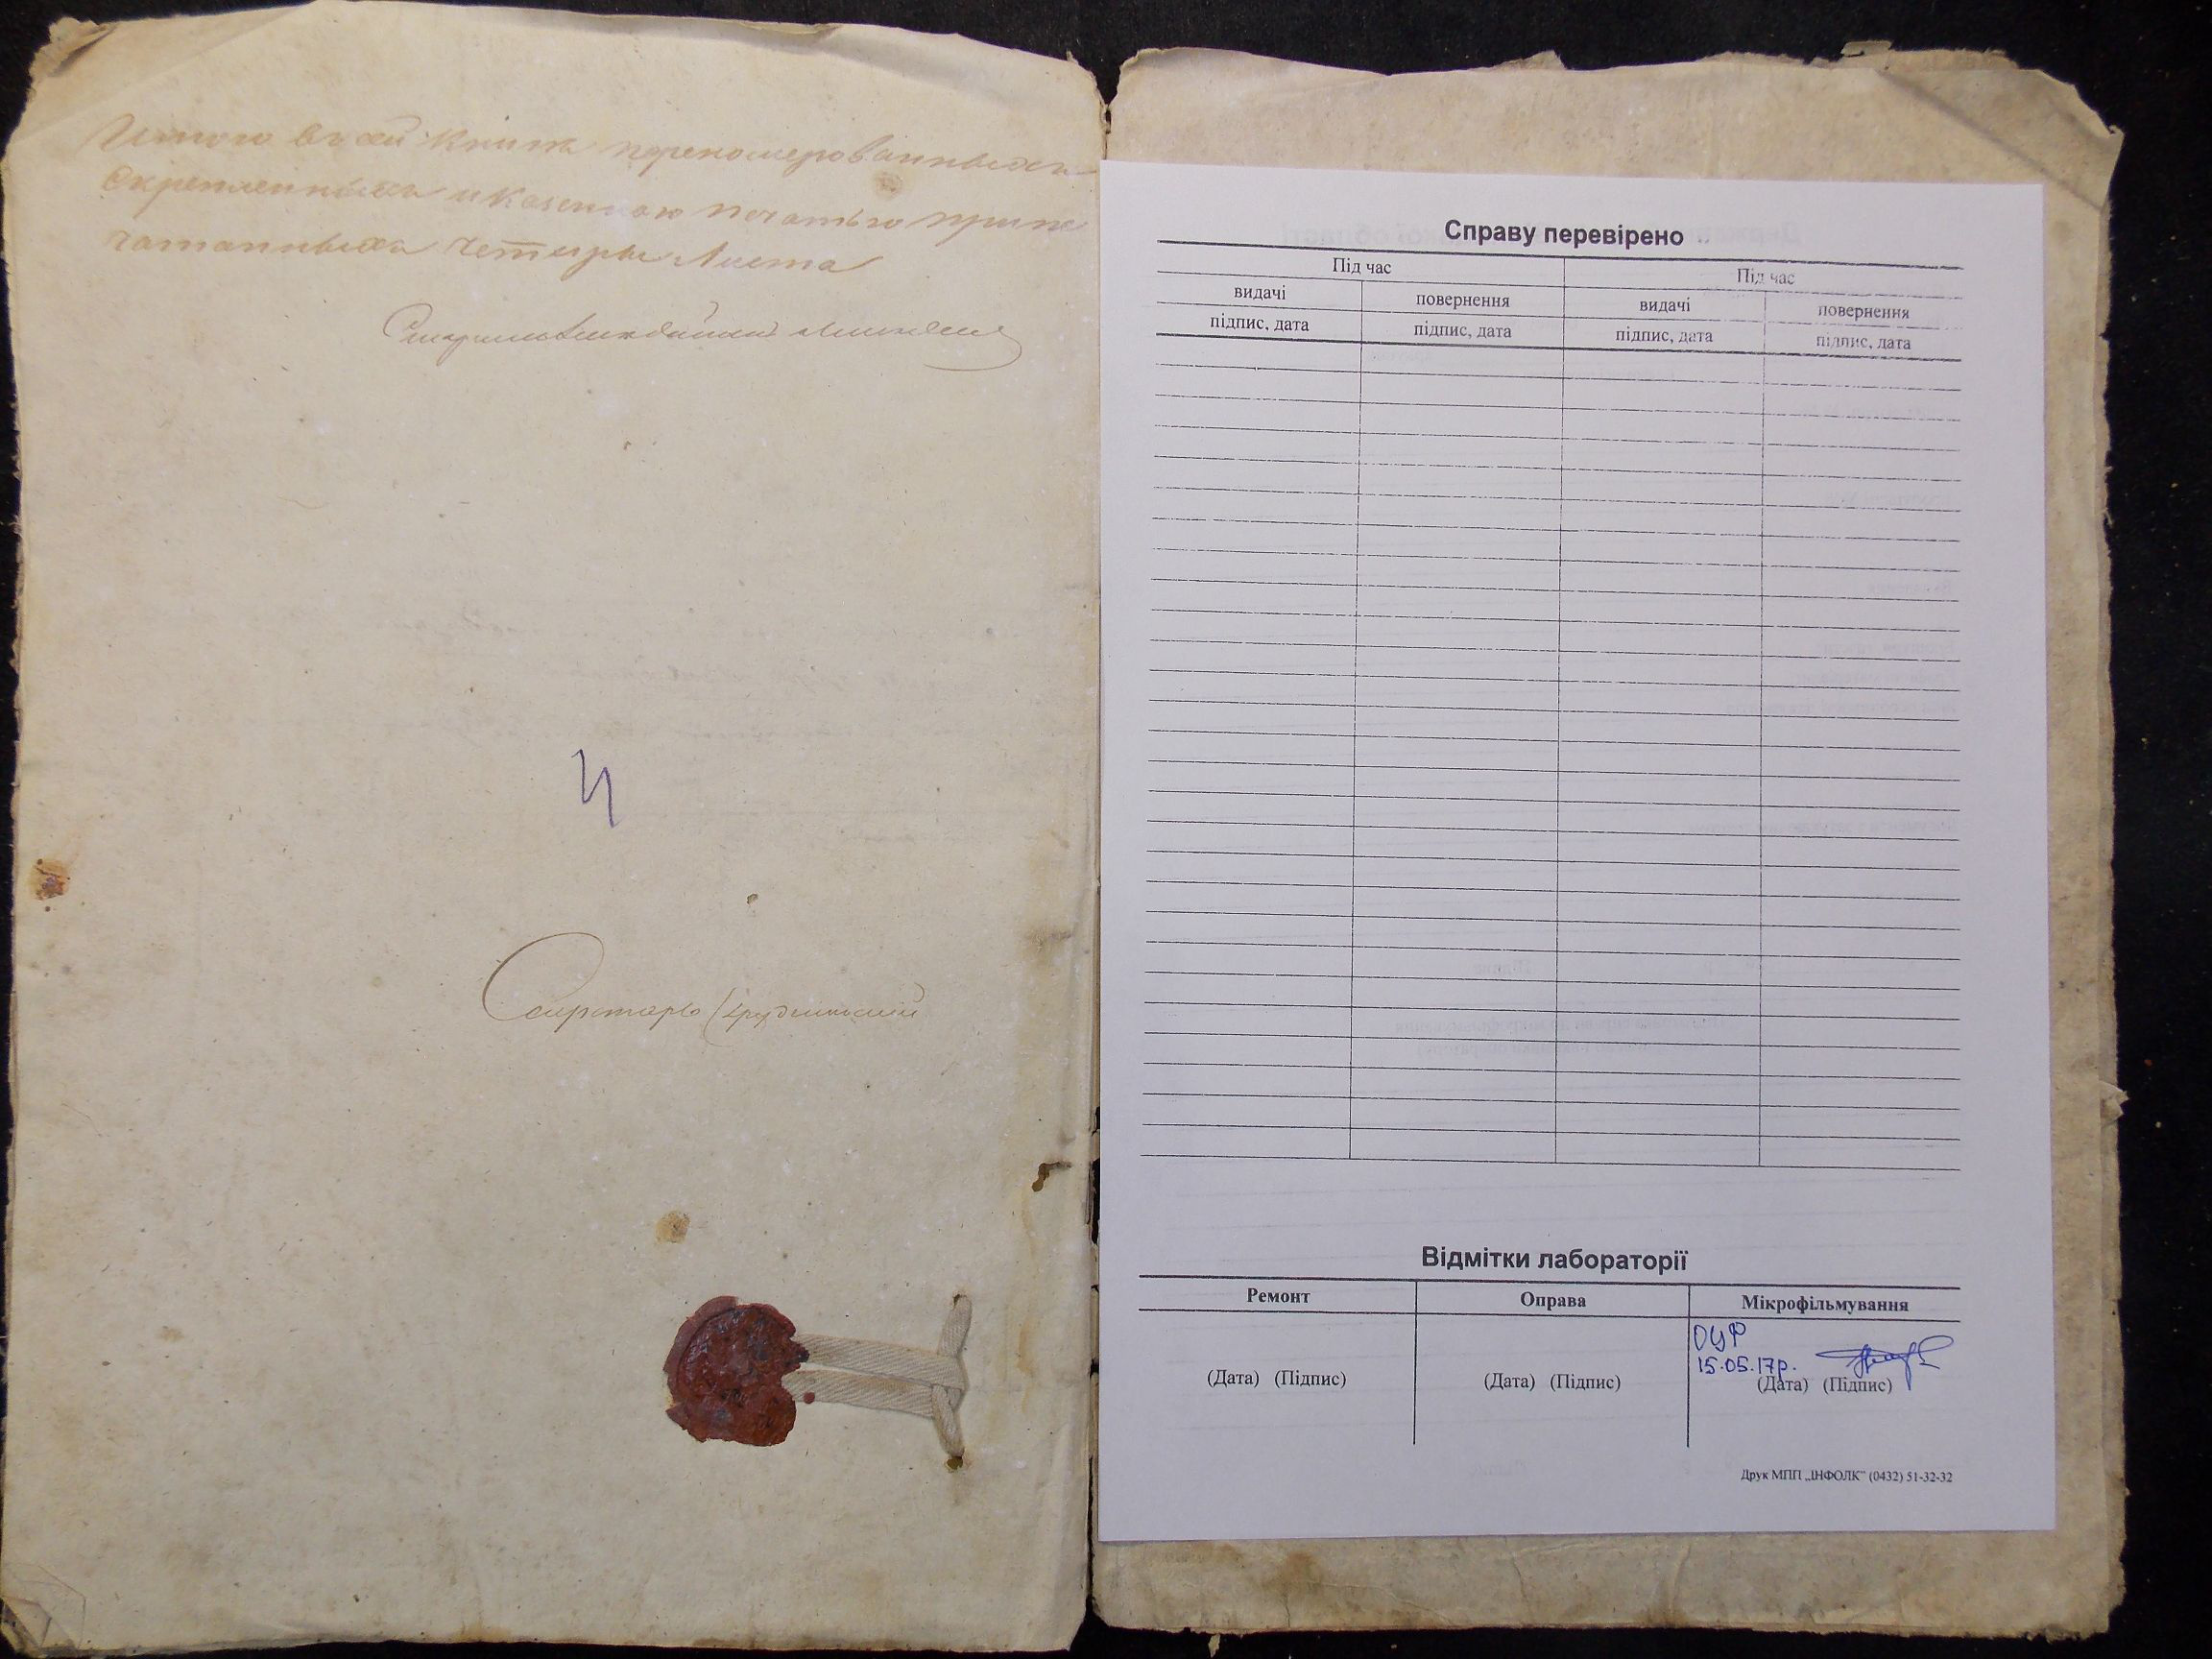 Итого въ сей книгѣ переномерованныхъ
Скрепленныхъ и казенною печатью припе
чатанныхъ четыры Листа
4
Секретарь
Справу перевірено
Під час Під час
видачі повернення видачі повернення
підпис, дата підпис, дата підпис, дата підпис, дата
Відмітки лабораторії
Ремонт Оправа Мікрофільмування
ОЦФ
15.05.17р.
(Дата) (Підпис) (Дата) (Підпис) (Дата) (Підпис)
Друк МПП „ІНФОЛК“ (0432) 51-32-32